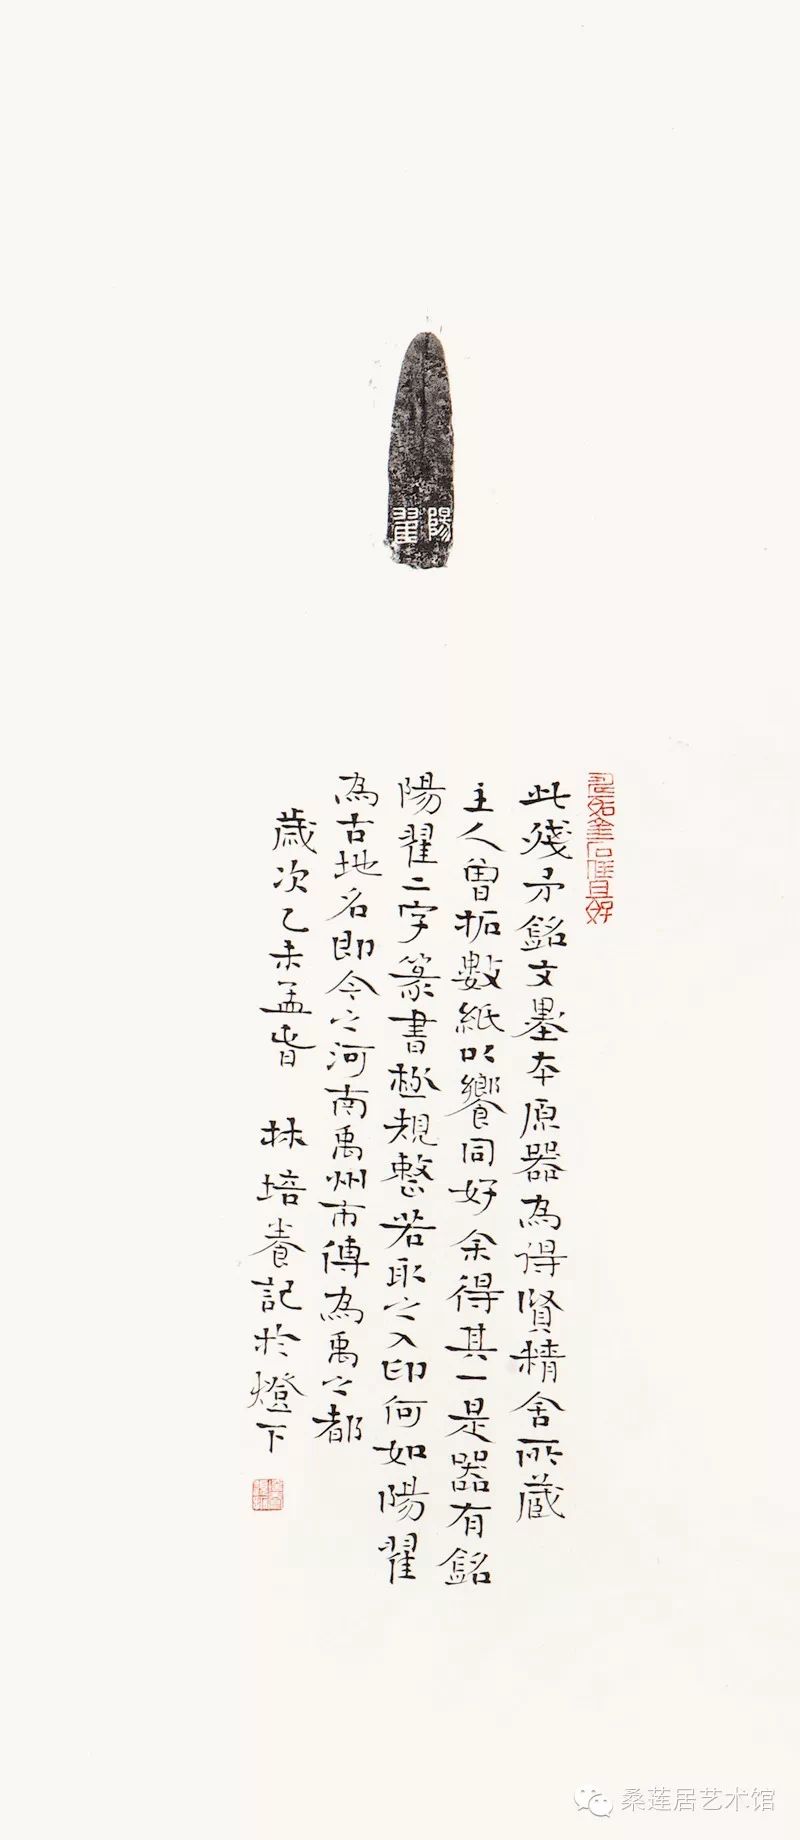 陽翟
此殘矛銘文墨本原器為得賢精舍所藏
主人曾拓數紙以饗同好余得其一是器有銘
陽翟二字篆書極規整若取之入印何如陽翟
為古地名即今之河南禹州市傳為禹之都
歲次乙未孟春 林培養記於燈下
桑莲居艺术馆